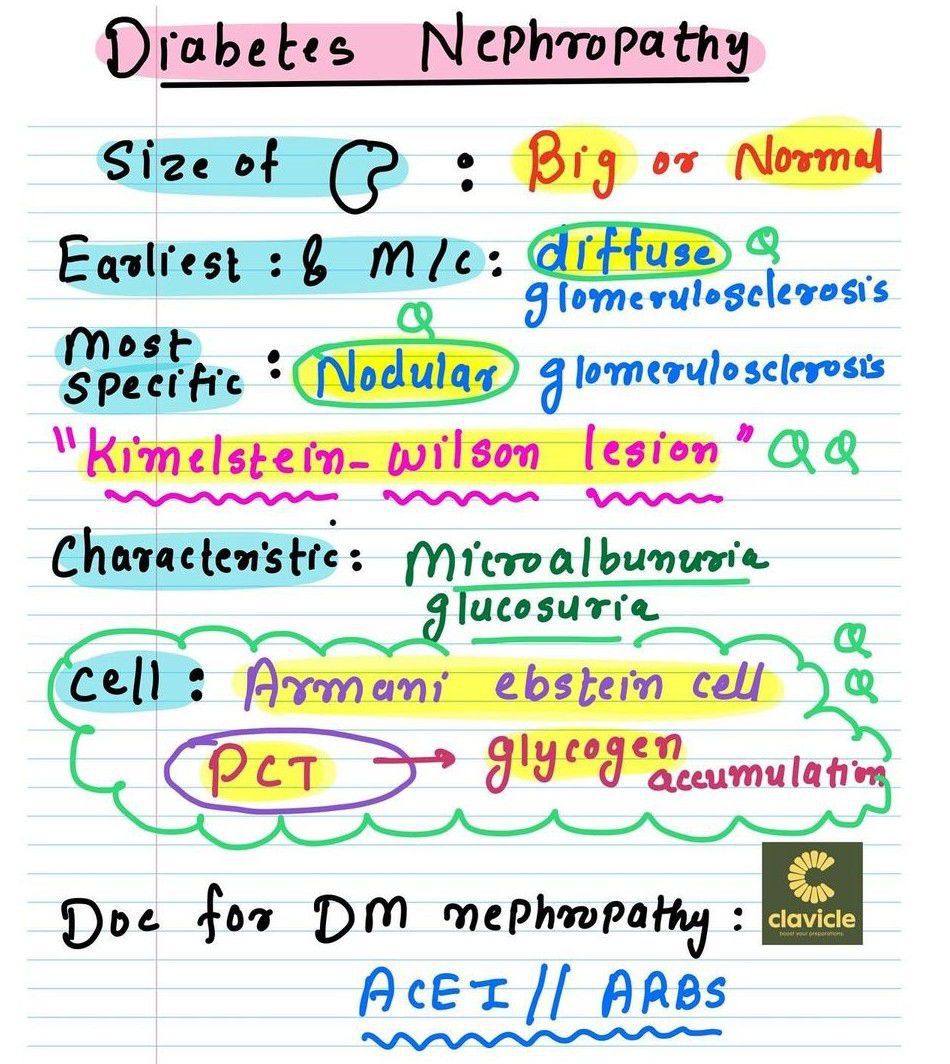 Diabetes Nephropathy
Size of : Big or Normal
Earliest : & M/c : diffuse Q
glomerulosclerosis
Q
Most
specific : Nodular glomerulosclerosis
"Kimelstein-wilson lesion" Q Q
Characteristic : Microalbunuria
glucosuria
Q
Cell : Armani ebstein cell Q
PCT → glycogen
accumulation
Doc for DM nephropathy :
clavicle
boost your preparations
ACEI // ARBS